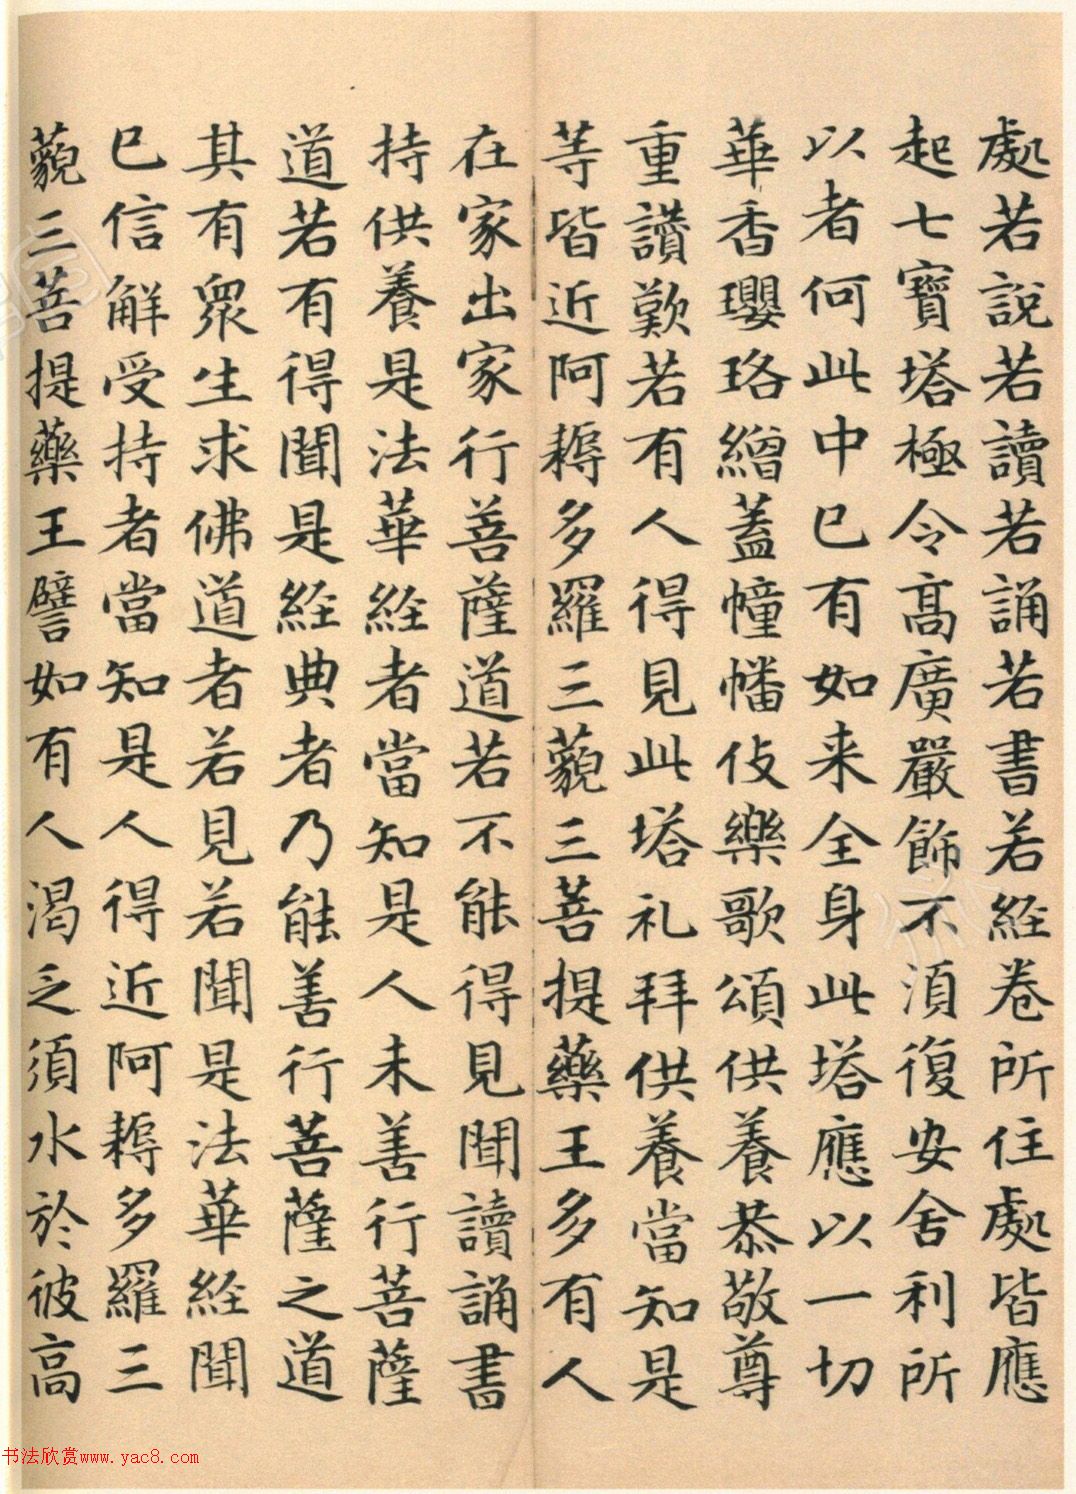 處若說若讀若誦若書若經卷所住處皆應
起七寶塔極令高廣嚴飾不須復安舍利所
以者何此中已有如来全身此塔應以一切
華香瓔珞繒蓋幢幡伎樂歌頌供養恭敬尊
重讚歎若有人得見此塔礼拜供養當知是
等皆近阿耨多羅三藐三菩提藥王多有人
在家出家行菩薩道若不能得見聞讀誦書
持供養是法華經者當知是人未善行菩薩
道若有得聞是經典者乃能善行菩薩之道
其有眾生求佛道者若見若聞是法華經聞
已信解受持者當知是人得近阿耨多羅三
藐三菩提藥王譬如有人渴乏須水於彼高
书法欣赏www.yac8.com